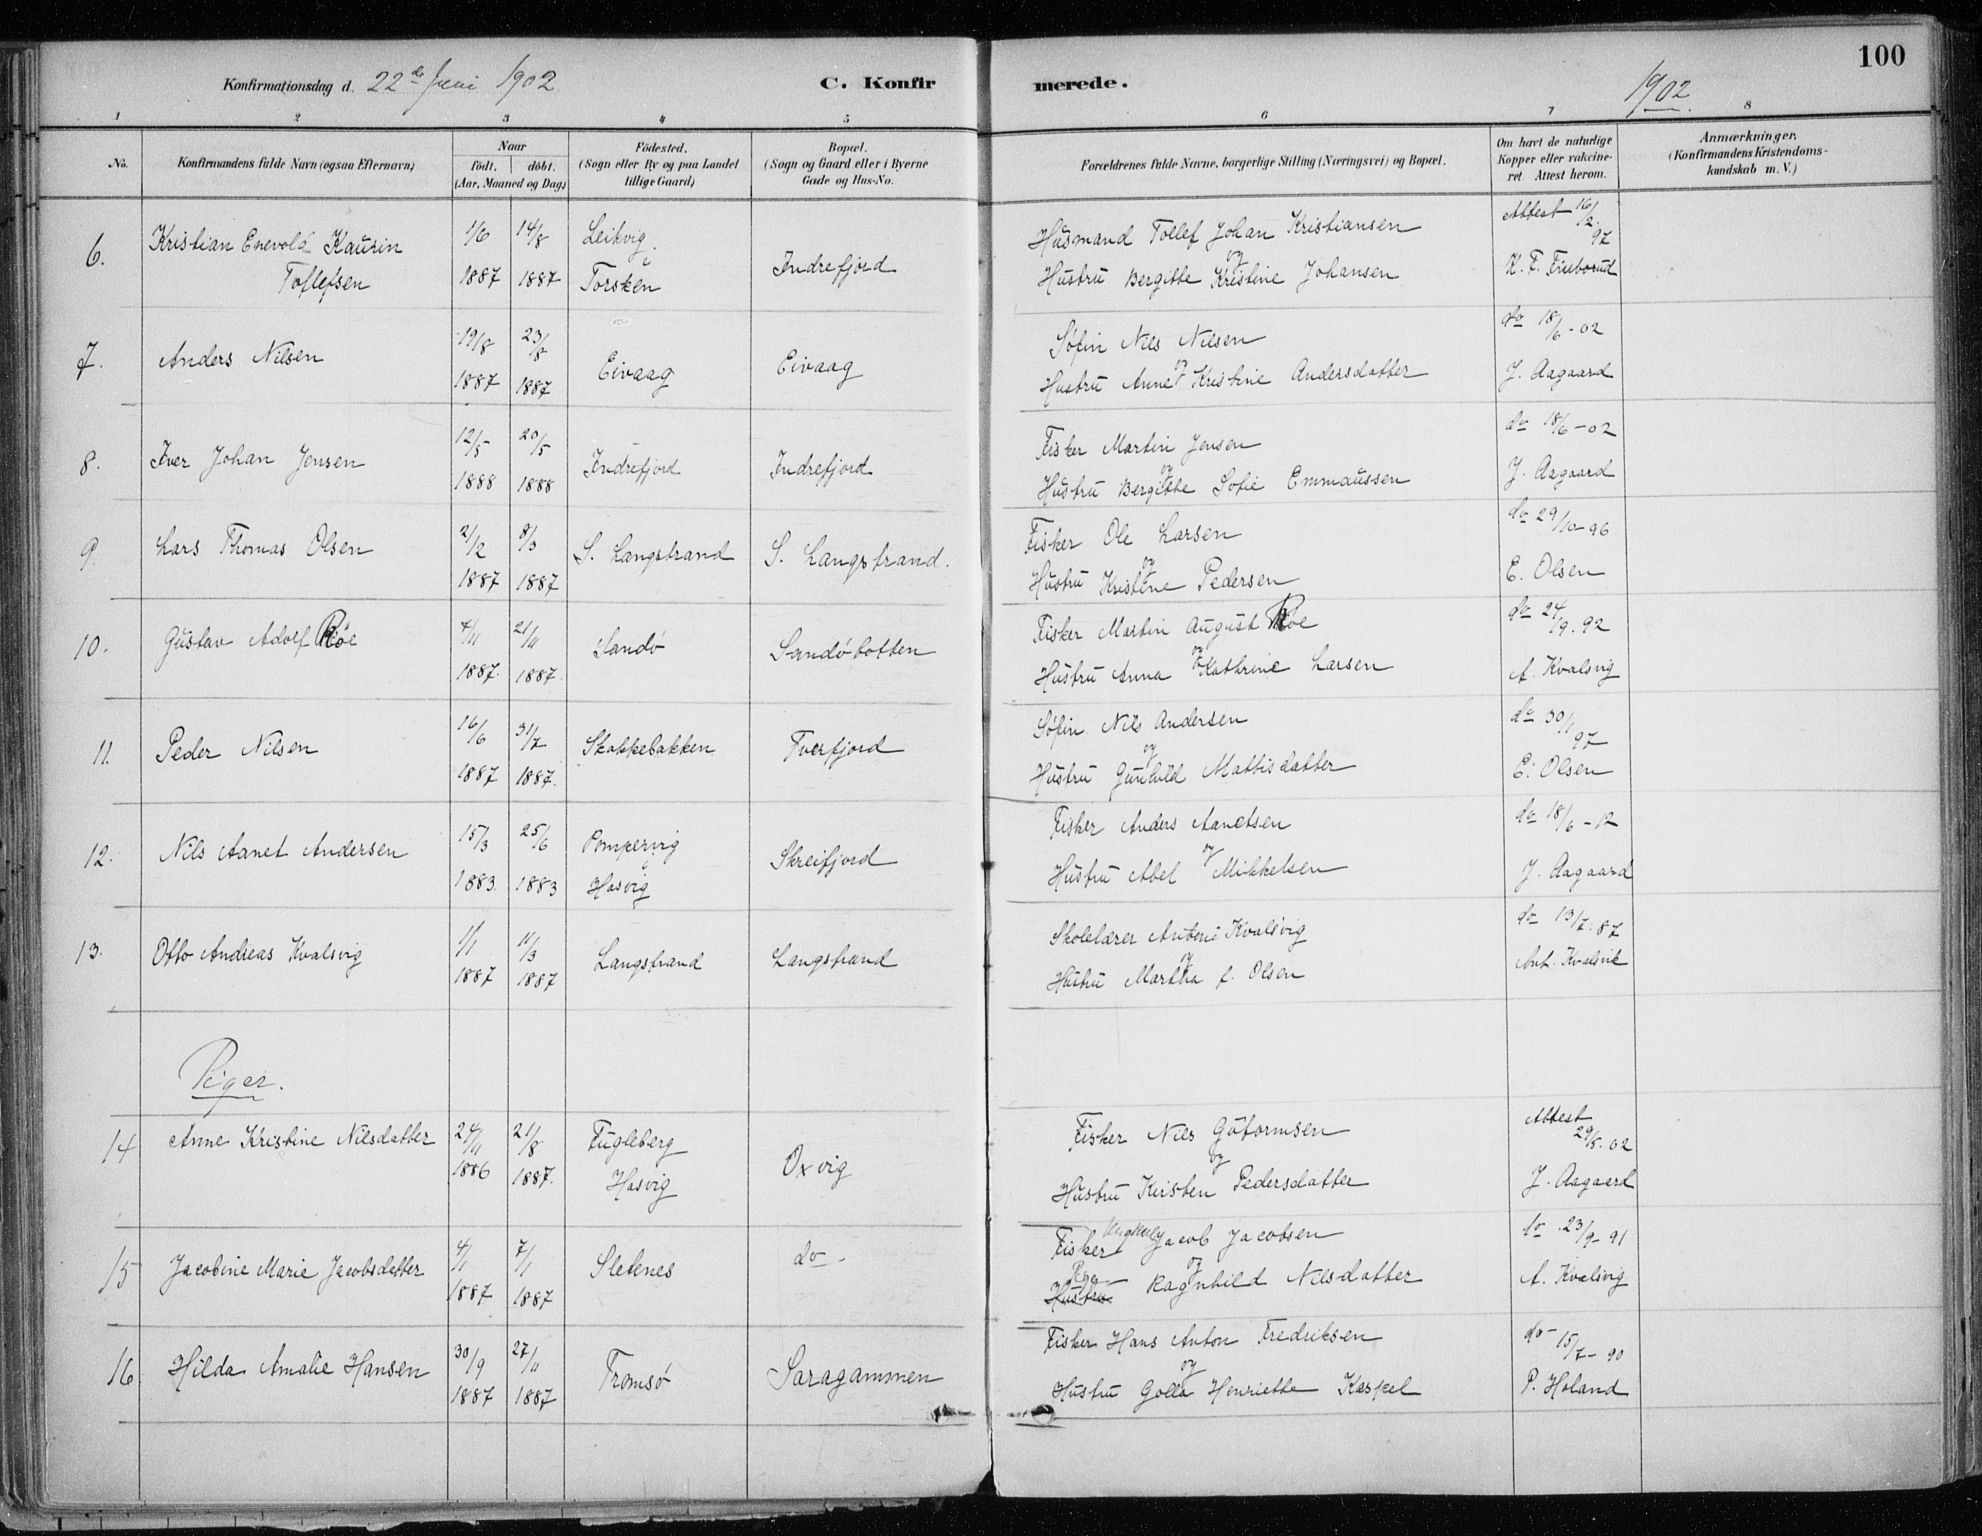 100
Konfirmationsdag d. 22de Juni 1902.
C. Konfirmerede.
1902.
1 2 3 4 5 6 7 8
No.
Konfirmandens fulde Navn (ogsaa Efternavn)
Naar
født. døbt.
(Aar, Maaned og Dag)
Fødested.
(Sogn eller By og paa Landet
tillige Gaard)
Bopæl.
(Sogn og Gaard eller i Byerne
Gade og Hus-No.
Forældrenes fulde Navne, borgerlige Stilling (Næringsvei) og Bopæl.
Om havt de naturlige
Kopper eller vakcine-
ret. Attest herom.
Anmærkninger.
(Konfirmandens Kristendoms-
kundskab m. V.)
6. Kristian Enevold Kaurin
Toflefsen
1/6 1887
14/8 1887
Leikvig
i
Torsken
Indrefjord
Husmand Tollef Johan Kristiansen
og
Hustru Bergitte Kristine Johansen
Attest 16/2 97
K. F. Finborud
7. Anders Nilsen
19/8 1887
23/8 1887
Eivaag
Eivaag
Søfin Nils Nilsen
og
Hustru Anne Kristine Andersdatter
do 18/6-02
J. Aagaard
8. Iver Johan Jensen
12/5 1888
20/5 1888
Indrefjord
Indrefjord
Fisker Martin Jensen
og
Hustru Bergitte Sofie Emmaussen
do 18/6-02
J. Aagaard
9. Lars Thomas Olsen
2/2 1887
8/3 1887
S. Langstrand
S. Langstrand.
Fisker Ole Larsen
og
Hustru Kristine Pedersen
do 29/10-96
E. Olsen
10. Gustav Adolf Röe
4/11 1887.
21/11 1887.
Sandø
Sandøbotten
Fisker Martin August Roe
og
Hustru Anna Kathrine Larsen
do 24/9.92
A. Kvalsvig
11. Peder Nilsen
16/6 1887
31/7 1887.
Skokkebakken
Tverfjord
Søfin Nils Andersen
og
Hustru Gunhild Mathisdatter
do 30/1 97
E. Olsen
12. Nils Aanet Andersen
15/3 1883.
25/6 1883
Pompervig
i
Hasvig
Skreifjord
Fisker Anders Aanetsen
og
Hustru Abel Mikkelsen
do 18/6-12
J. Aagaard
13. Otto Andreas Kvalsvig
1/1 1887
11/3 1887
Langstrand
Langstrand
Skolelærer Antoni Kvalsvig
og
Hustru Martha f. Olsen
do 13/7.87
Ant. Kvalsvik
Piger.
14 Anne Kristine Nilsdatter
24/11 1886
21/8 1887.
Fugleberg
Hasvig
Oxvig
Fisker Nils Gutormsen
og
Hustru Kirsten Pedersdatter
Attest 29/5.02
J. Aagaard
15 Jacobine Marie Jacobsdatter
4/1 1887
7/1 1887
Sletnes
do -
Fisker Ungkarl Jacob Jacobsen
og
Pige Hustru Ragnhild Nilsdatter
do 23/9-91
A. Kvalsvig
16 Hilda Amalie Hansen
30/9 1887
27/11 1887
Tromsø
Saragammen
Fisker Hans Anton Fredriksen
og
Hustru Golla Henriette Kaspel
do 15/7-90
P. Holand